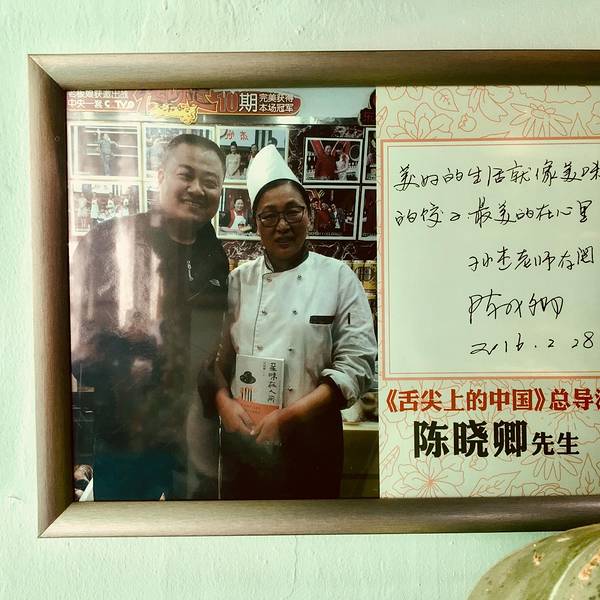 板娘获邀出战
中央一套 CCTV
10期
完美获得
本场冠军
孙杰
至味在人间
美好的生活就像美味
的饺子最美的在心里
孙杰老师存阅
陈晓卿
2016.2.28
《舌尖上的中国》总导
陈晓卿先生